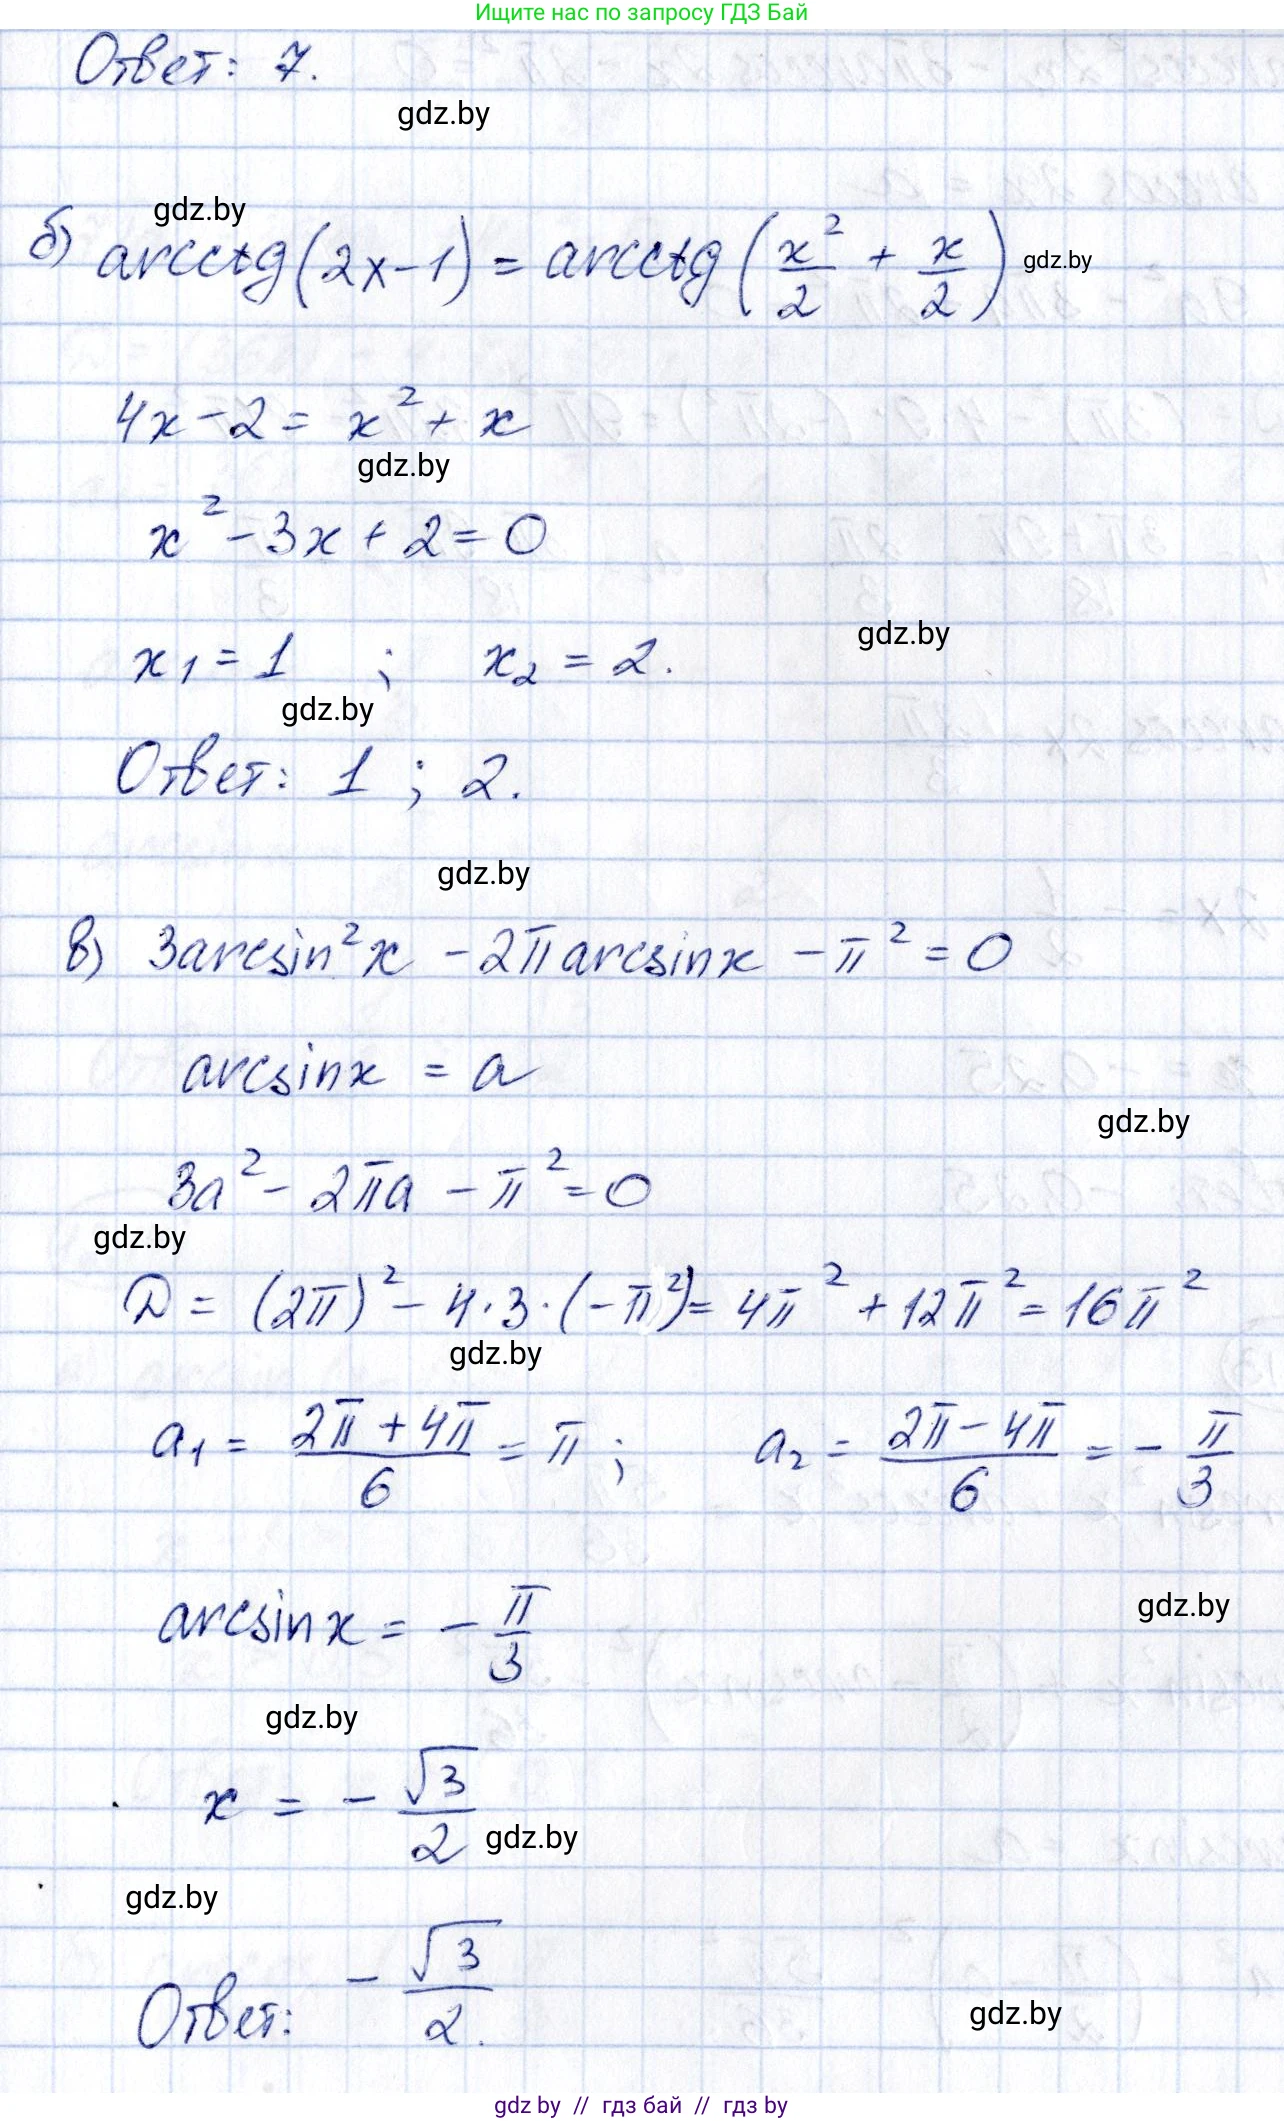 Ищите нас по запросу ГДЗ Бай
Ответ: 7.
gdz.by
gdz.by
б) arcctg(2x-1) = arcctg(x²/2 + x/2) gdz.by
4x-2 = x² + x
gdz.by
x² - 3x + 2 = 0
gdz.by
x₁ = 1 ; x₂ = 2.
gdz.by
Ответ: 1 ; 2.
gdz.by
в) 3arcsin²x - 2π arcsinx - π² = 0
arcsinx = a
gdz.by
3a² - 2πa - π² = 0
gdz.by
D = (2π)² - 4·3·(-π²) = 4π² + 12π² = 16π²
gdz.by
a₁ = (2π + 4π)/6 = π ; a₂ = (2π - 4π)/6 = - π/3
gdz.by
arcsinx = - π/3
gdz.by
x = - √3/2
gdz.by
gdz.by
Ответ: - √3/2.
gdz.by
gdz by // гдз бай // гдз by